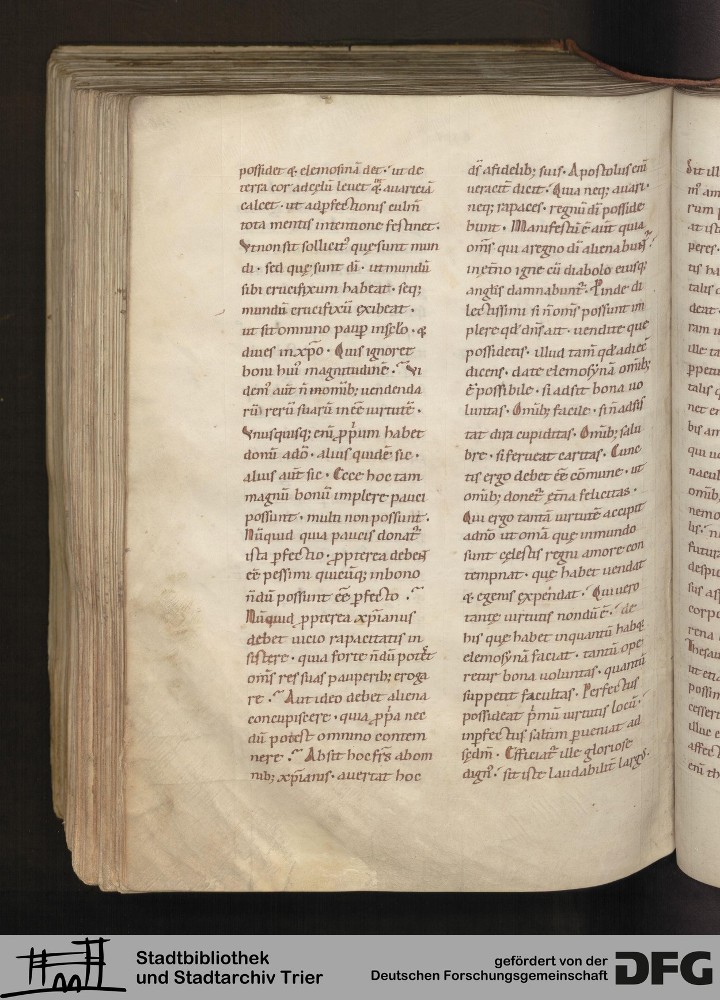 possidet q; elemosinā det. ut de
terra cor ad cęlū levet q̄ avaritiā
calcet. ut ad pfectionis culm̄
tota mentis intentione festinet.
Ut non sit sollicit' quę sunt mun
di. sed quę sunt dī. ut mundū
sibi crucifixum habeat. seq;
mundū crucifixū exibeat.
ut sit omnino paup in sęlo. q;
dives in xp̄o. Quis ignoret
boni hui' magnitudinē. Vi
dem' aūt n̄ in om̄ib; vendenda
rū rerū suarū inēē virtutē.
Unusquisq; enī pprium habet
donū a dō. alius quidē sic.
alius aūt sic. Ecce hoc tam
magnū bonū implere pauci
possunt. multi non possunt.
Nūquid quia paucis donat̄
ista pfectio. ppterea debent
ēē pessimi quicūq; in bono
n̄dū possunt ēē pfecto.
Nūquid ppterea xp̄ianus
debet vicio rapacitatis in
sistere. quia forte n̄dū potēt
om̄s res suas pauperib; eroga
re. Aut ideo debet aliena
concupiscere. quia ppa nec
dū potest omnino contem
nere. Absit hoc fr̄s ab om
nib; xp̄ianis. avertat hoc
dś a fidelib; suis. Apostolus enī
veracit̄ dicit. Quia neq; avari.
neq; rapaces. regnū dī posside
bunt. Manifestū ē aūt quia
om̄s qui a regno dī alienabunt̄.
in et̄no igne cū diabolo eiusq;
angl̄is damnabunt̄. Pinde di
lectissimi si n̄ om̄s possunt im
plere qd dn̄s ait. vendite que
possidetis. illud tam̄ qd adiec̄
dicens. date elemosynā om̄ib;
ē possibile. si adsit bona vo
luntas. Om̄ib; facile. si n̄ adsis
tat dira cupiditas. Om̄ib; salu
bre. si ferveat caritas. Cunc
tis ergo debet ēē cōmune. ut
om̄ib; donet̄ et̄na felicitas.
Qui ergo tantā virtutē accipit
a dn̄o ut om̄a que in mundo
sunt cęlestis regni amore con
tempnat. que habet vendat
q; egenis expendat. Qui vero
tantę virtutis nondū ē. de
his que habet in quantū habet
elemosynā faciat. tantū ope
retur bona voluntas. quantū
suppetit facultas. Perfectus
possideat pmū virtutis locū.
inpfectus saltim pveniat ad
sc̄dm̄. Efficiat̄ ille gloriose
dign'. sit iste laudabilit̄ larg'.
Stadtbibliothek
und Stadtarchiv Trier
gefördert von der
Deutschen Forschungsgemeinschaft
DFG